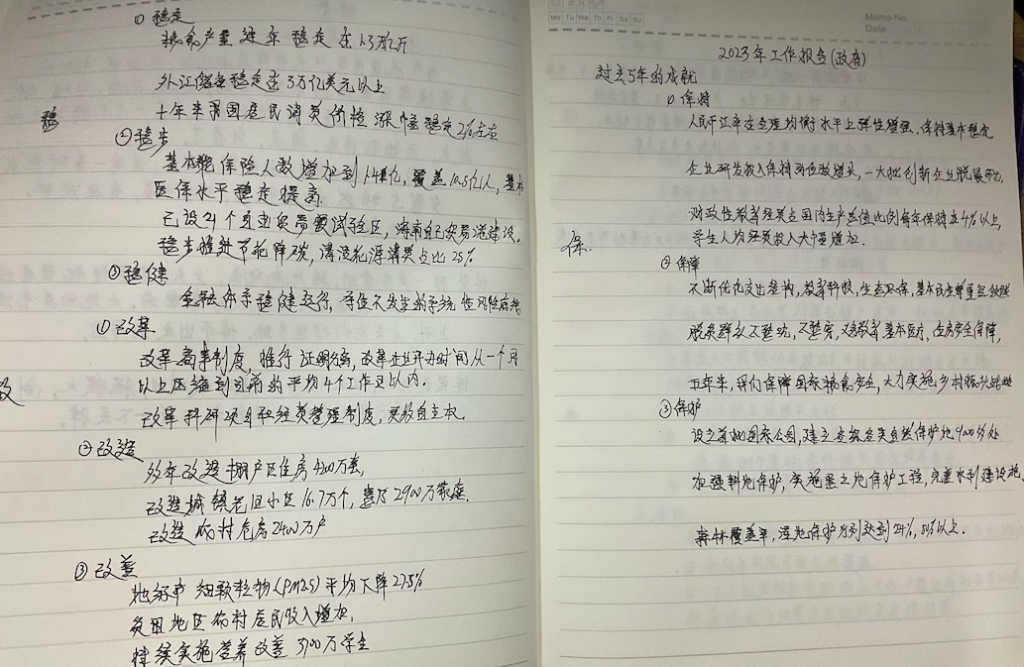 ① 稳定
粮食产量连年稳定在1.3万亿斤
外汇储备稳定在3万亿美元以上
十年来我国居民消费价格涨幅稳定2%左右
稳
②稳步
基本养老保险人数增加到1.4亿,覆盖10.5亿人,基本
医保水平稳定提高.
已设21个自由贸易试验区,海南自己贸易港建设.
稳步推进节能降碳,清洁能源消费占比25%
③稳健
金融体系稳健运行,守住不发生系统性风险底线
① 改革
改革商事制度,推行证照分离,改革企业开办时间从一个月
以上压缩到目前的平均4个工作日以内.
改
改革科研项目和经费管理制度,更多自主权.
②改造
多年改造棚户区住房4200万套,
改造城镇老旧小区16.7万个,惠及2900万家庭.
改造农村危房2400万户
③ 改善
地级市细颗粒物(PM2.5)平均下降27.5%
贫困地区农村居民收入增加.
持续实施营养改善 3700万学生
Mo Tu We Th Fr Sa Su
Memo No.
Date
2023年工作报告(政府)
过去5年的成就
① 保持
人民币汇率在合理均衡水平上弹性增强、保持基本稳定
企业研发投入保持两位数增长,一大批创新企业脱颖而出,
财政性教育经费占国内生产总值比例每年保持在4%以上,
学生人均经费投入大幅增加.
保.
② 保障
不断优化支出结构,教育科技,生态环保,基本民生等重点
脱贫群众不愁吃,不愁穿,义务教育基本医疗,住房安全保障,
五年来,我们保障国家粮食安全,大力实施乡村振兴战略
③保护
设立首批国家公园,建立各级各类自然保护地9000多处
加强耕地保护,实施黑土地保护工程,完善水利建设施
森林覆盖率,湿地保护分别达到24%,50%以上.